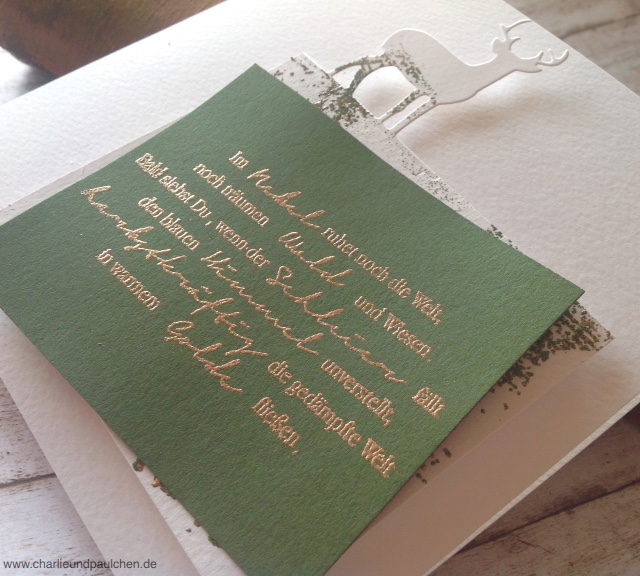 Im Nebel ruhet noch die Welt,
noch träumen Wald und Wiesen.
Bald siehst Du, wenn der Schleier fällt
den blauen Himmel unverstellt,
herbstkräftig die gedämpfte Welt
in warmem Golde fließen,
www.charlieundpaulchen.de